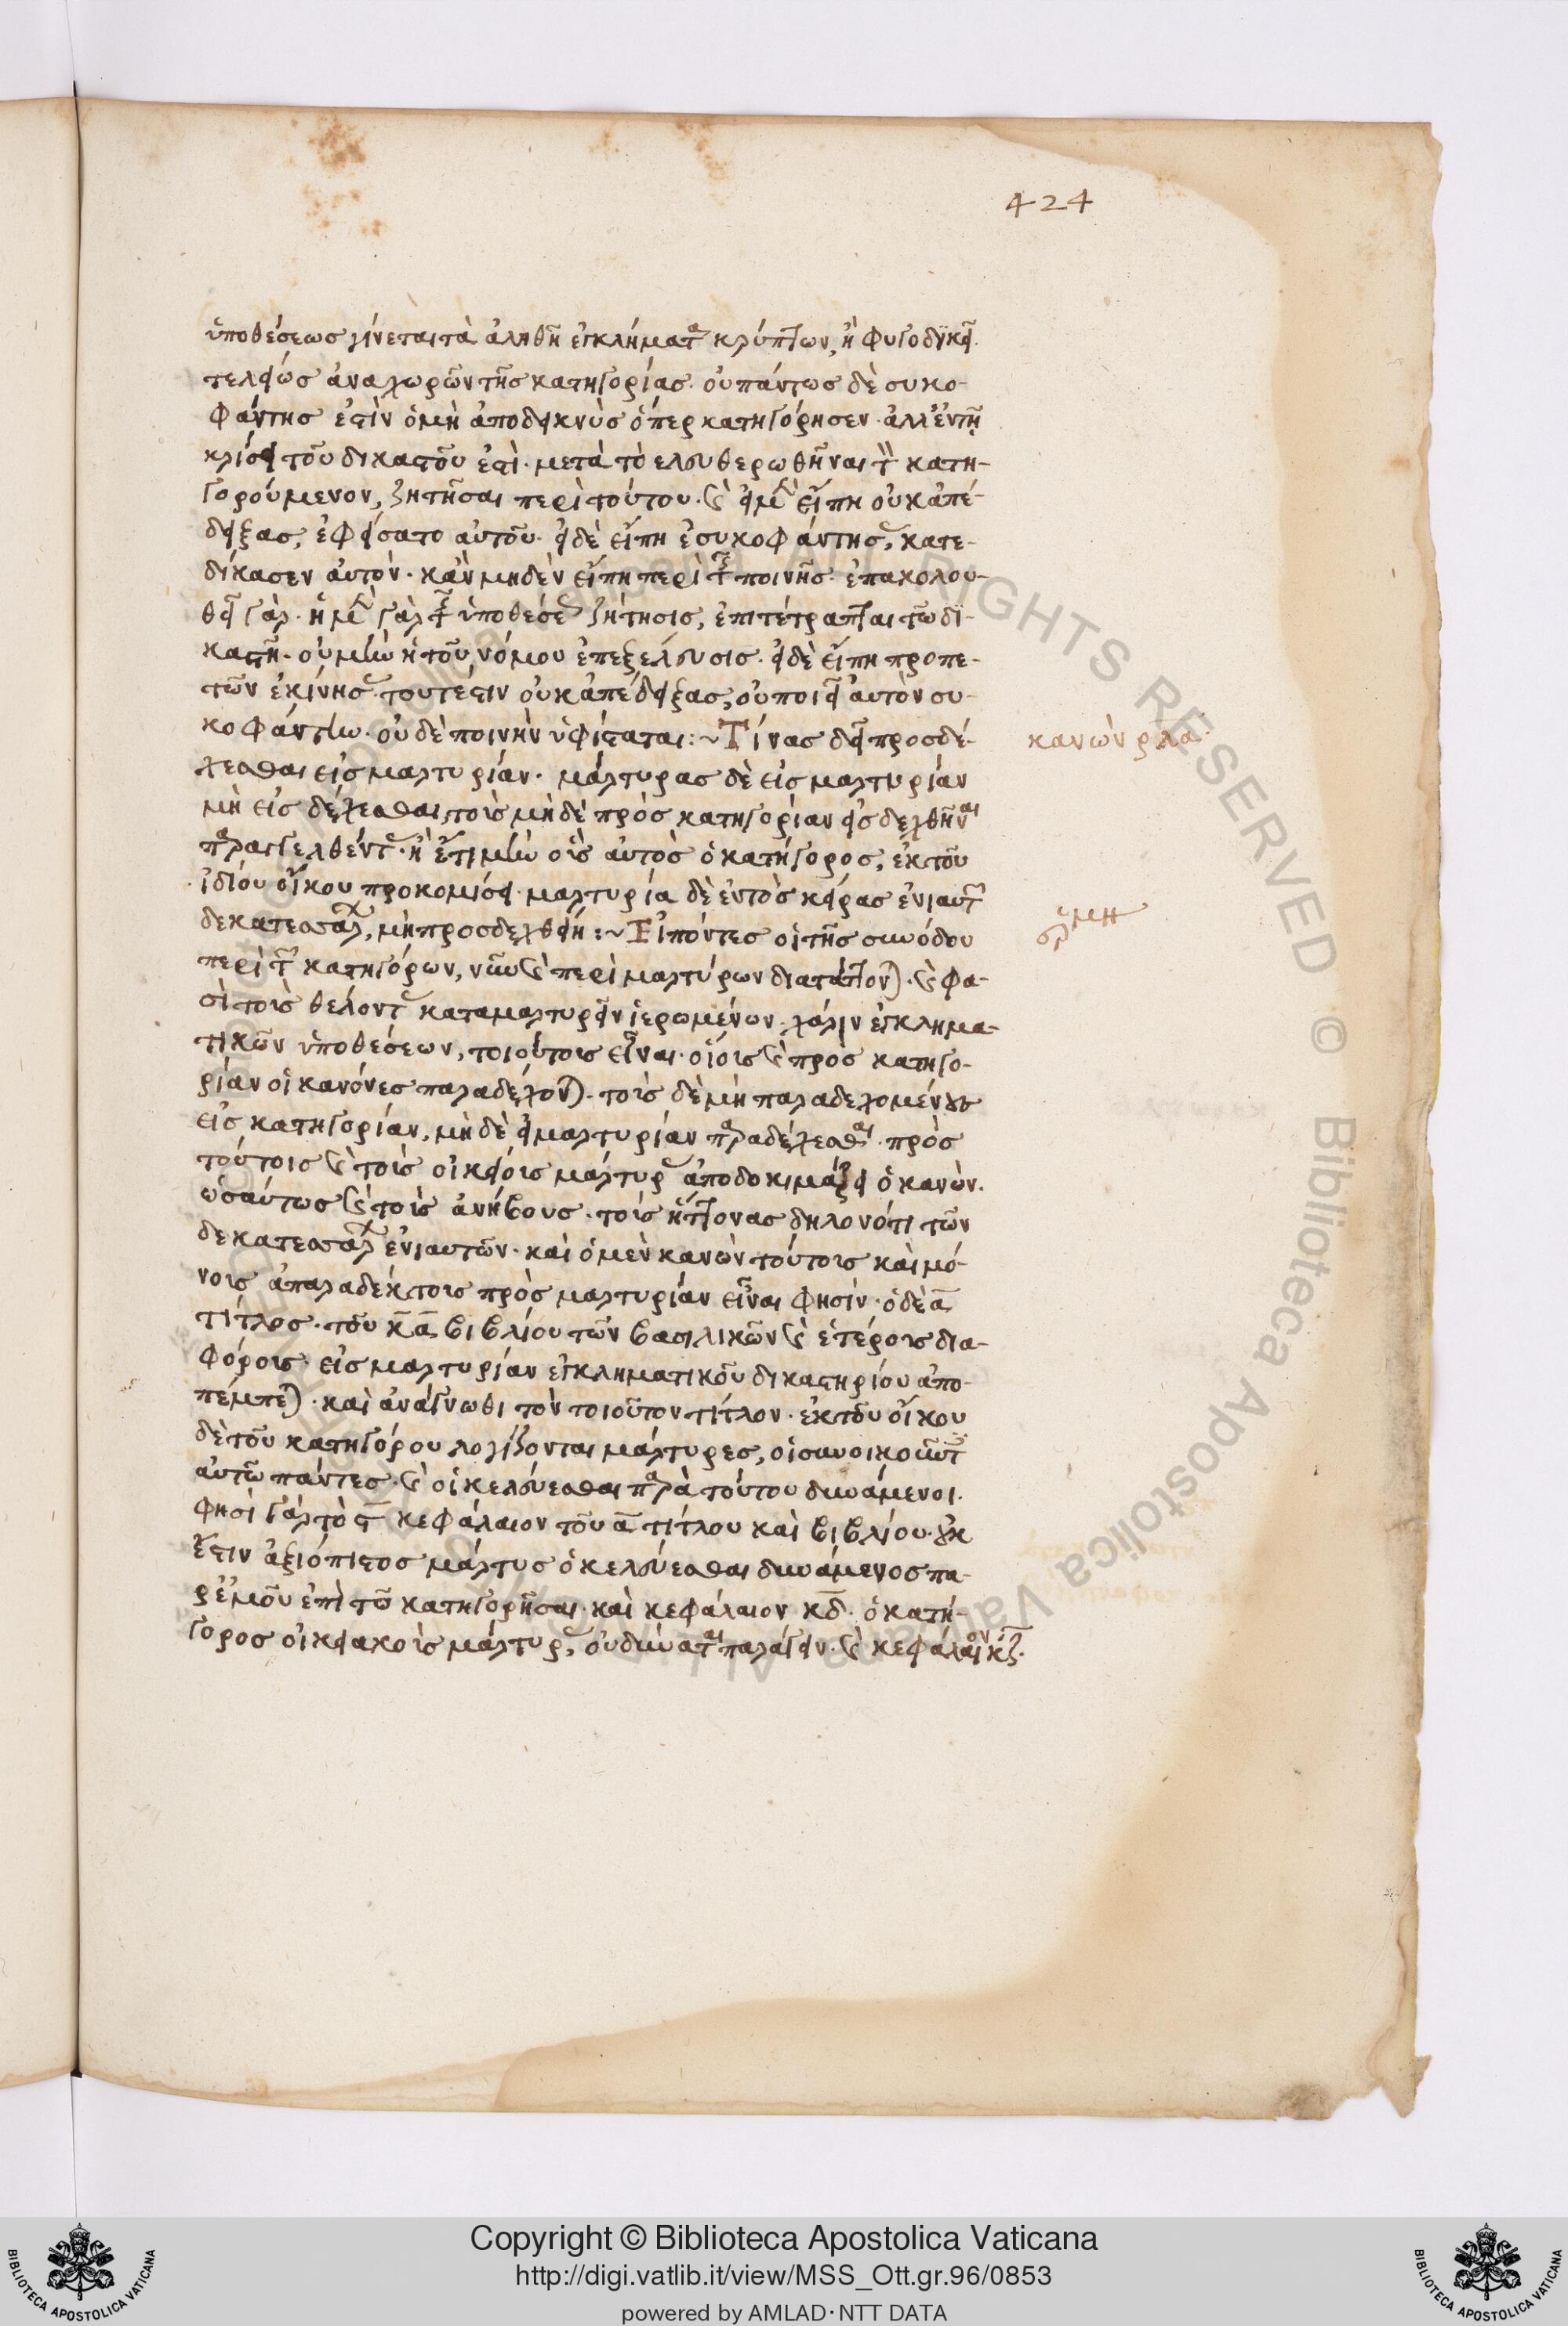 424
ὑποθέσεως γίνεται τὰ ἀληθῆ ἐγκλήματα κρύπτων, ἢ φυγοδικεῖ
τελείως ἀναχωρῶν τῆς κατηγορίας· οὐ πάντως δὲ συκο-
φάντης ἐστὶν ὁ μὴ ἀποδεικνὺς ὅπερ κατηγόρησεν· ἀλλ' ἐν τῇ
κρίσει τοῦ δικαστοῦ ἐστὶ· μετὰ τὸ ἐλευθερωθῆναι τὸν κατη-
γορούμενον, ζητῆσαι περὶ τούτου· καὶ εἰ μὲν εἴπη οὐκ ἀπέ-
δειξας, ἐφείσατο αὐτοῦ· εἰ δὲ εἴπη ἐσυκοφάντησας, κατε-
δίκασεν αὐτόν· κἂν μηδὲν εἴπη περὶ τῆς ποινῆς· ἐπακολου-
θεῖ γάρ· ἡ μὲν γὰρ τῆς ὑποθέσεως ζήτησις, ἐπιτέτραπται τῶ δι-
καστῆ· οὐ μὴν ἡ τοῦ νόμου ἐπεξέλευσις· εἰ δὲ εἴπη προπε-
τῶν ἐκίνησας τουτέστιν οὐκ ἀπέδειξας, οὐ ποιεῖ αὐτὸν συ-
κοφάντην· οὐδὲ ποινὴν ὑφίσταται:~ Τίνας δεῖ προσδέ-
κανὼν ρλα
χεσθαι εἰς μαρτυρίαν· μάρτυρας δὲ εἰς μαρτυρίαν
μὴ εἰσδέχεσθαι, τοὺς μὴ δὲ πρὸς κατηγορίαν εἰσδεχθῆναι
παραγγελθέντας· ἢ ἔτι μὴν οὓς αὐτὸς ὁ κατήγορος, ἐκ τοῦ
ἰδίου οἴκου προκομίσει· μαρτυρία δὲ ἐντὸς κείρας ἐνιαυτῶν
δεκατεσσάρων, μὴ προσδεχθείη:~ Εἰπόντες οἱ τῆς συνόδου
περὶ τῶν κατηγόρων, νῦν καὶ περὶ μαρτύρων διατάττονται· καὶ φα-
σὶ τοὺς θέλοντας καταμαρτυρεῖν ἱερωμένων χάριν ἐγκλημα-
τικῶν ὑποθέσεων, τοιούτους εἶναι· οἵους καὶ πρὸς κατηγο-
ρίαν οἱ κανόνες παραδέχονται· τοὺς δὲ μὴ παραδεχομένους
εἰς κατηγορίαν, μὴ δὲ εἰς μαρτυρίαν παραδέχεσθαι· πρὸς
τούτοις καὶ τοὺς οἰκείους μάρτυρας ἀποδοκιμάζει ὁ κανών.
ὡσαύτως καὶ τοὺς ἀνήβους· τοὺς ἥττονας δηλονότι τῶν
δεκατεσσάρων ἐνιαυτῶν· καὶ ὁ μὲν κανὼν τούτους καὶ μό-
νους ἀπαραδέκτους πρὸς μαρτυρίαν εἶναι φησίν· ὁ δὲ α
τίτλος· τοῦ κα βιβλίου τῶν βασιλικῶν καὶ ἑτέρους δια-
φόρους· εἰς μαρτυρίαν ἐγκληματικοῦ δικαστηρίου ἀπο-
πέμπεται· καὶ ἀνάγνωθι τὸν τοιοῦτον τίτλον· ἐκ τοῦ οἴκου
δὲ τοῦ κατηγόρου λογίζονται μάρτυρες, οἱ συνοικοῦντες
αὐτῶ πάντες· καὶ οἱ κελεύεσθαι παρὰ τούτου δυνάμενοι.
φησὶ γὰρ τὸ ϛ κεφάλαιον τοῦ α τίτλου καὶ βιβλίου· οὐκ
ἔστιν ἀξιόπιστος μάρτυς ὁ κελεύεσθαι δυνάμενος πα-
ρ' ἐμοῦ ἐπὶ τῶ κατηγορῆσαι· καὶ κεφάλαιον κδ· ὁ κατή-
γορος οἰκειακοὺς μάρτυρας, οὐ δύναται παράγειν· καὶ κεφάλαιον κζ·
Copyright © Biblioteca Apostolica Vaticana
http://digi.vatlib.it/view/MSS_Ott.gr.96/0853
powered by AMLAD·NTT DATA
BIBLIOTECA APOSTOLICA VATICANA
BIBLIOTECA APOSTOLICA VATICANA